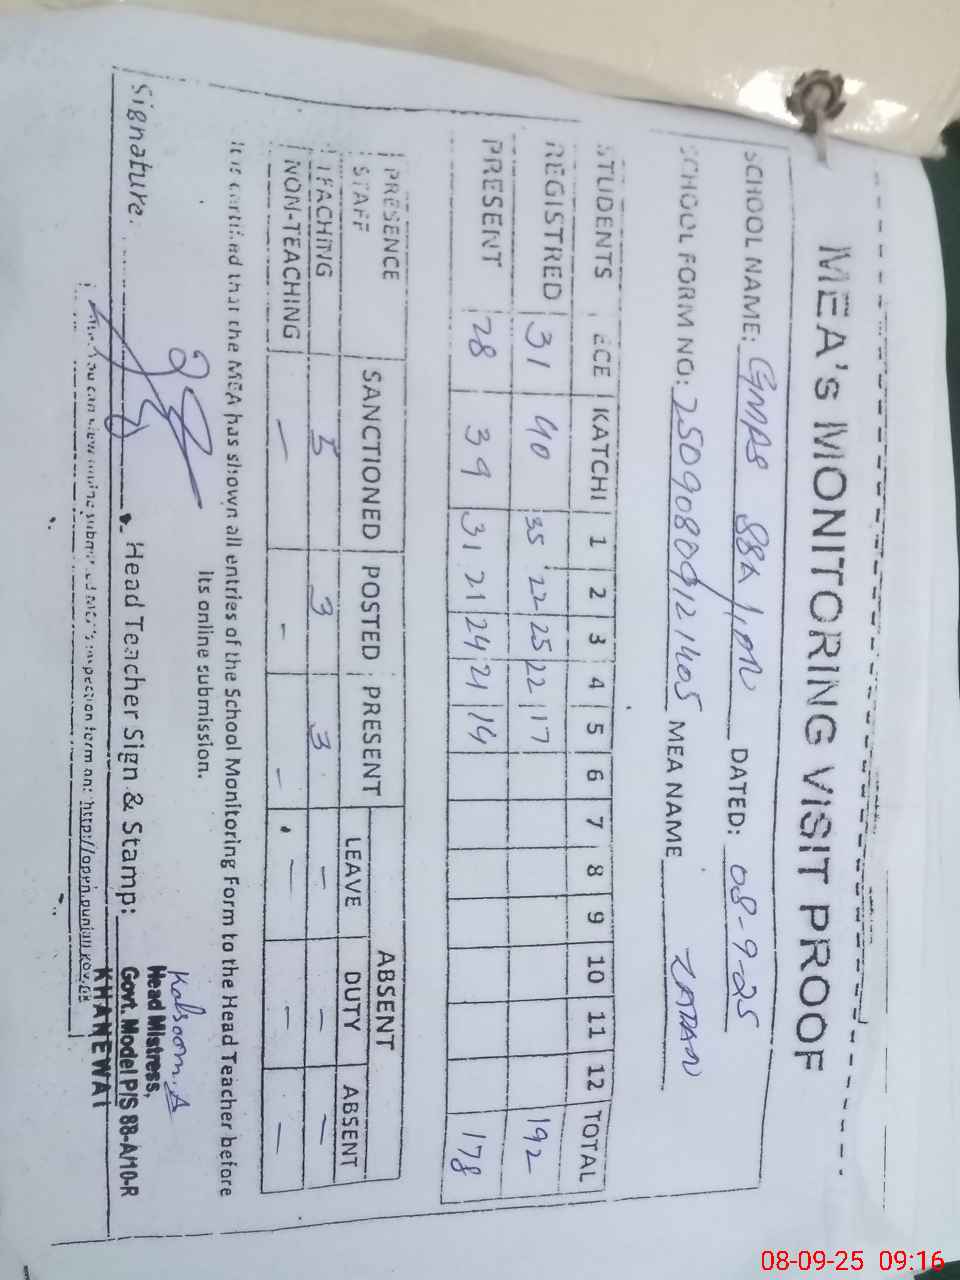 MEA's MONITORING VISIT PROOF
SCHOOL NAME: GMPS 88A/10R DATED: 08-9-25
SCHOOL FORM NO: 25090809121405 MEA NAME
STUDENTS ECE KATCHI 1 2 3 4 5 6 7 8 9 10 11 12 TOTAL
REGISTRED 31 40 35 22 25 22 17 192
PRESENT 28 39 31 21 24 21 14 178
PRESENCE STAFF SANCTIONED POSTED PRESENT ABSENT
LEAVE DUTY ABSENT
TEACHING 5 3 3 - - -
NON-TEACHING - - - - - -
It is certified that the MEA has shown all entries of the School Monitoring Form to the Head Teacher before
its online submission.
Kalsoom.A
Signature: Head Teacher Sign & Stamp:
Head Mistress,
Govt. Model P/S 88-A/10-R
KHANEWAL
you can view online submitted MEA's inspection form on: http://open.punjab.gov.pk
08-09-25 09:16